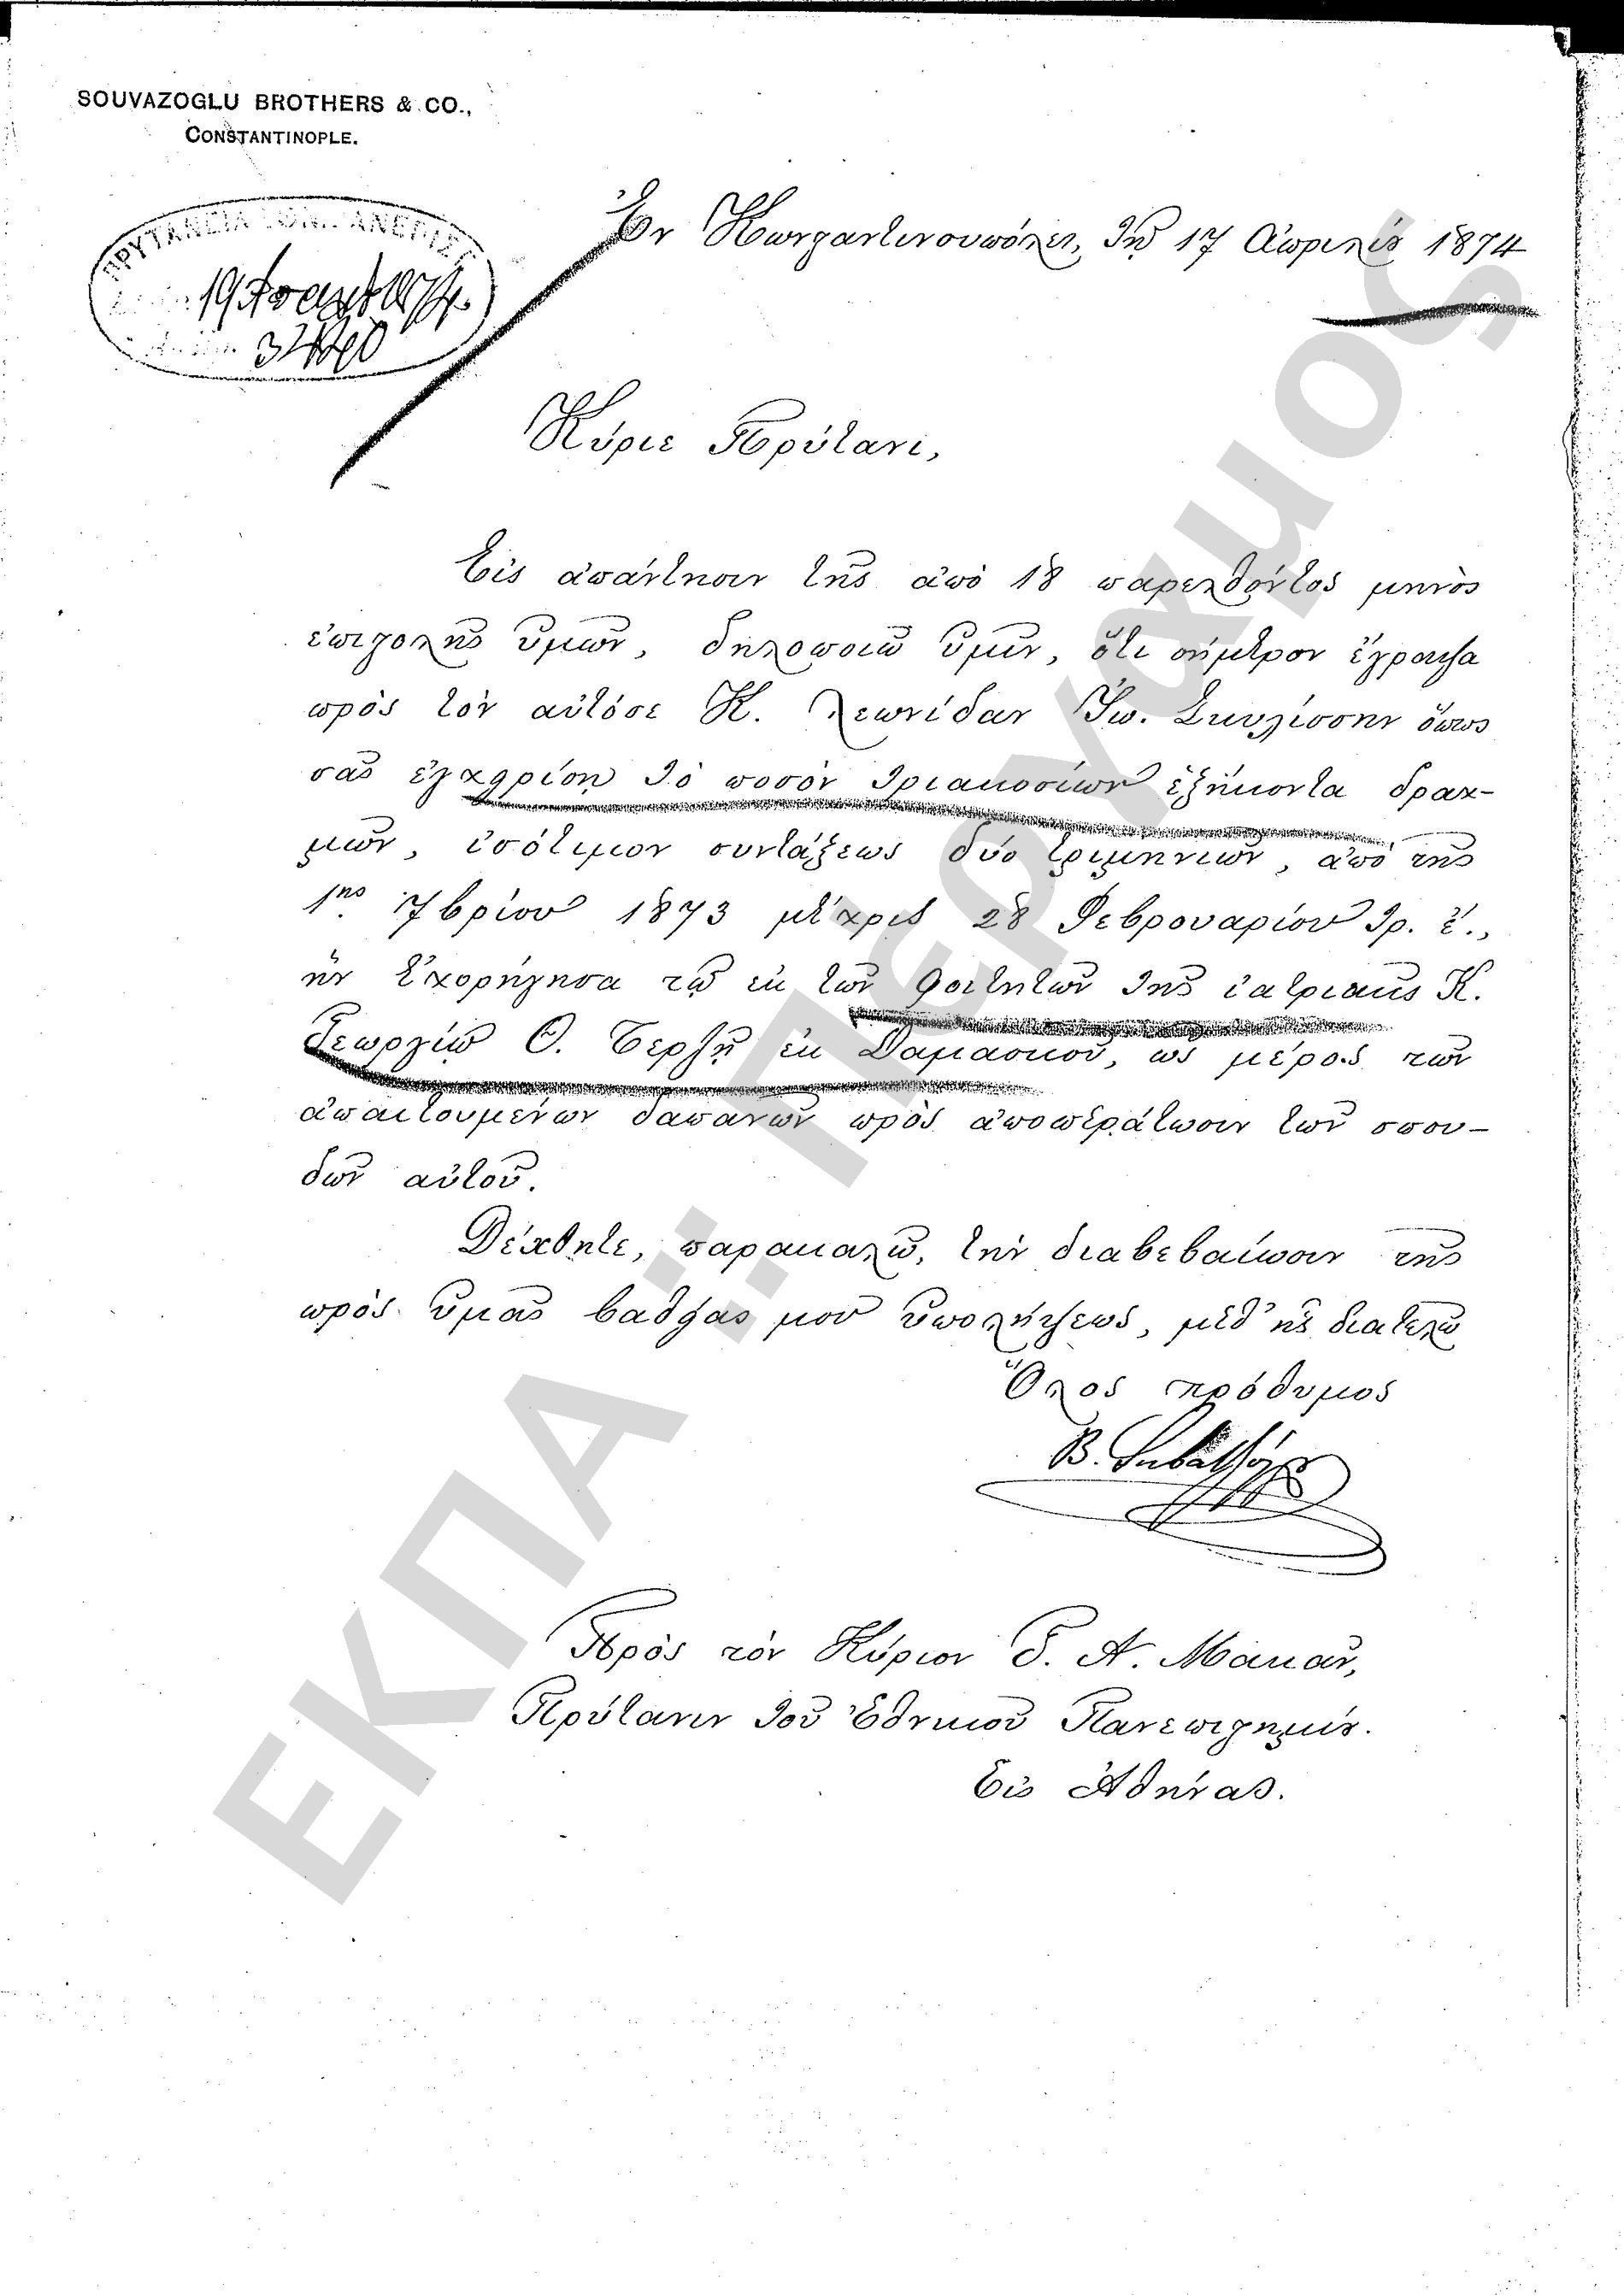 SOUVAZOGLU BROTHERS & CO.,
CONSTANTINOPLE.
ΠΡΥΤΑΝΕΙΑ
Ἐν Κωνσταντινουπόλει, τῇ 17 Ἀπριλίου 1874
Κύριε Πρύτανι,
Εἰς ἀπάντησιν τῆς ἀπὸ 18 παρελθόντος μηνὸς
ἐπιστολῆς ὑμῶν, δηλοποιῶ ὑμῖν, ὅτι σήμερον ἔγραψα
πρὸς τὸν αὐτόσε Κ. Λεωνίδαν Ἰω. Σκυλίσσην ὅπως
σᾶς ἐγχειρίσῃ τὸ ποσὸν τριακοσίων ἑξήκοντα δραχ-
μῶν, ἰσότιμον συντάξεως δύο τριμηνιῶν, ἀπὸ τῆς
1ης 7βρίου 1873 μέχρις 28 Φεβρουαρίου τρ. ἔ.,
ἣν ἐχορήγησα τῷ ἐκ τῶν φοιτητῶν τῆς ἰατρικῆς Κ.
Γεωργίῳ Θ. ἐκ Δαμασκοῦ, ὡς μέρος τῶν
ἀπαιτουμένων δαπανῶν πρὸς ἀποπεράτωσιν τῶν σπου-
δῶν αὐτοῦ.
Δέχθητε, παρακαλῶ, τὴν διαβεβαίωσιν τῆς
πρὸς ὑμᾶς βαθείας μου ὑπολήψεως, μεθ' ἧς διατελῶ
Ὅλος πρόθυμος
Πρὸς τὸν Κύριον Γ. Α. Μακᾶν,
Πρύτανιν τοῦ Ἐθνικοῦ Πανεπιστημίου.
Εἰς Ἀθήνας.
ΕΚΠΑ :: Πέργαμος